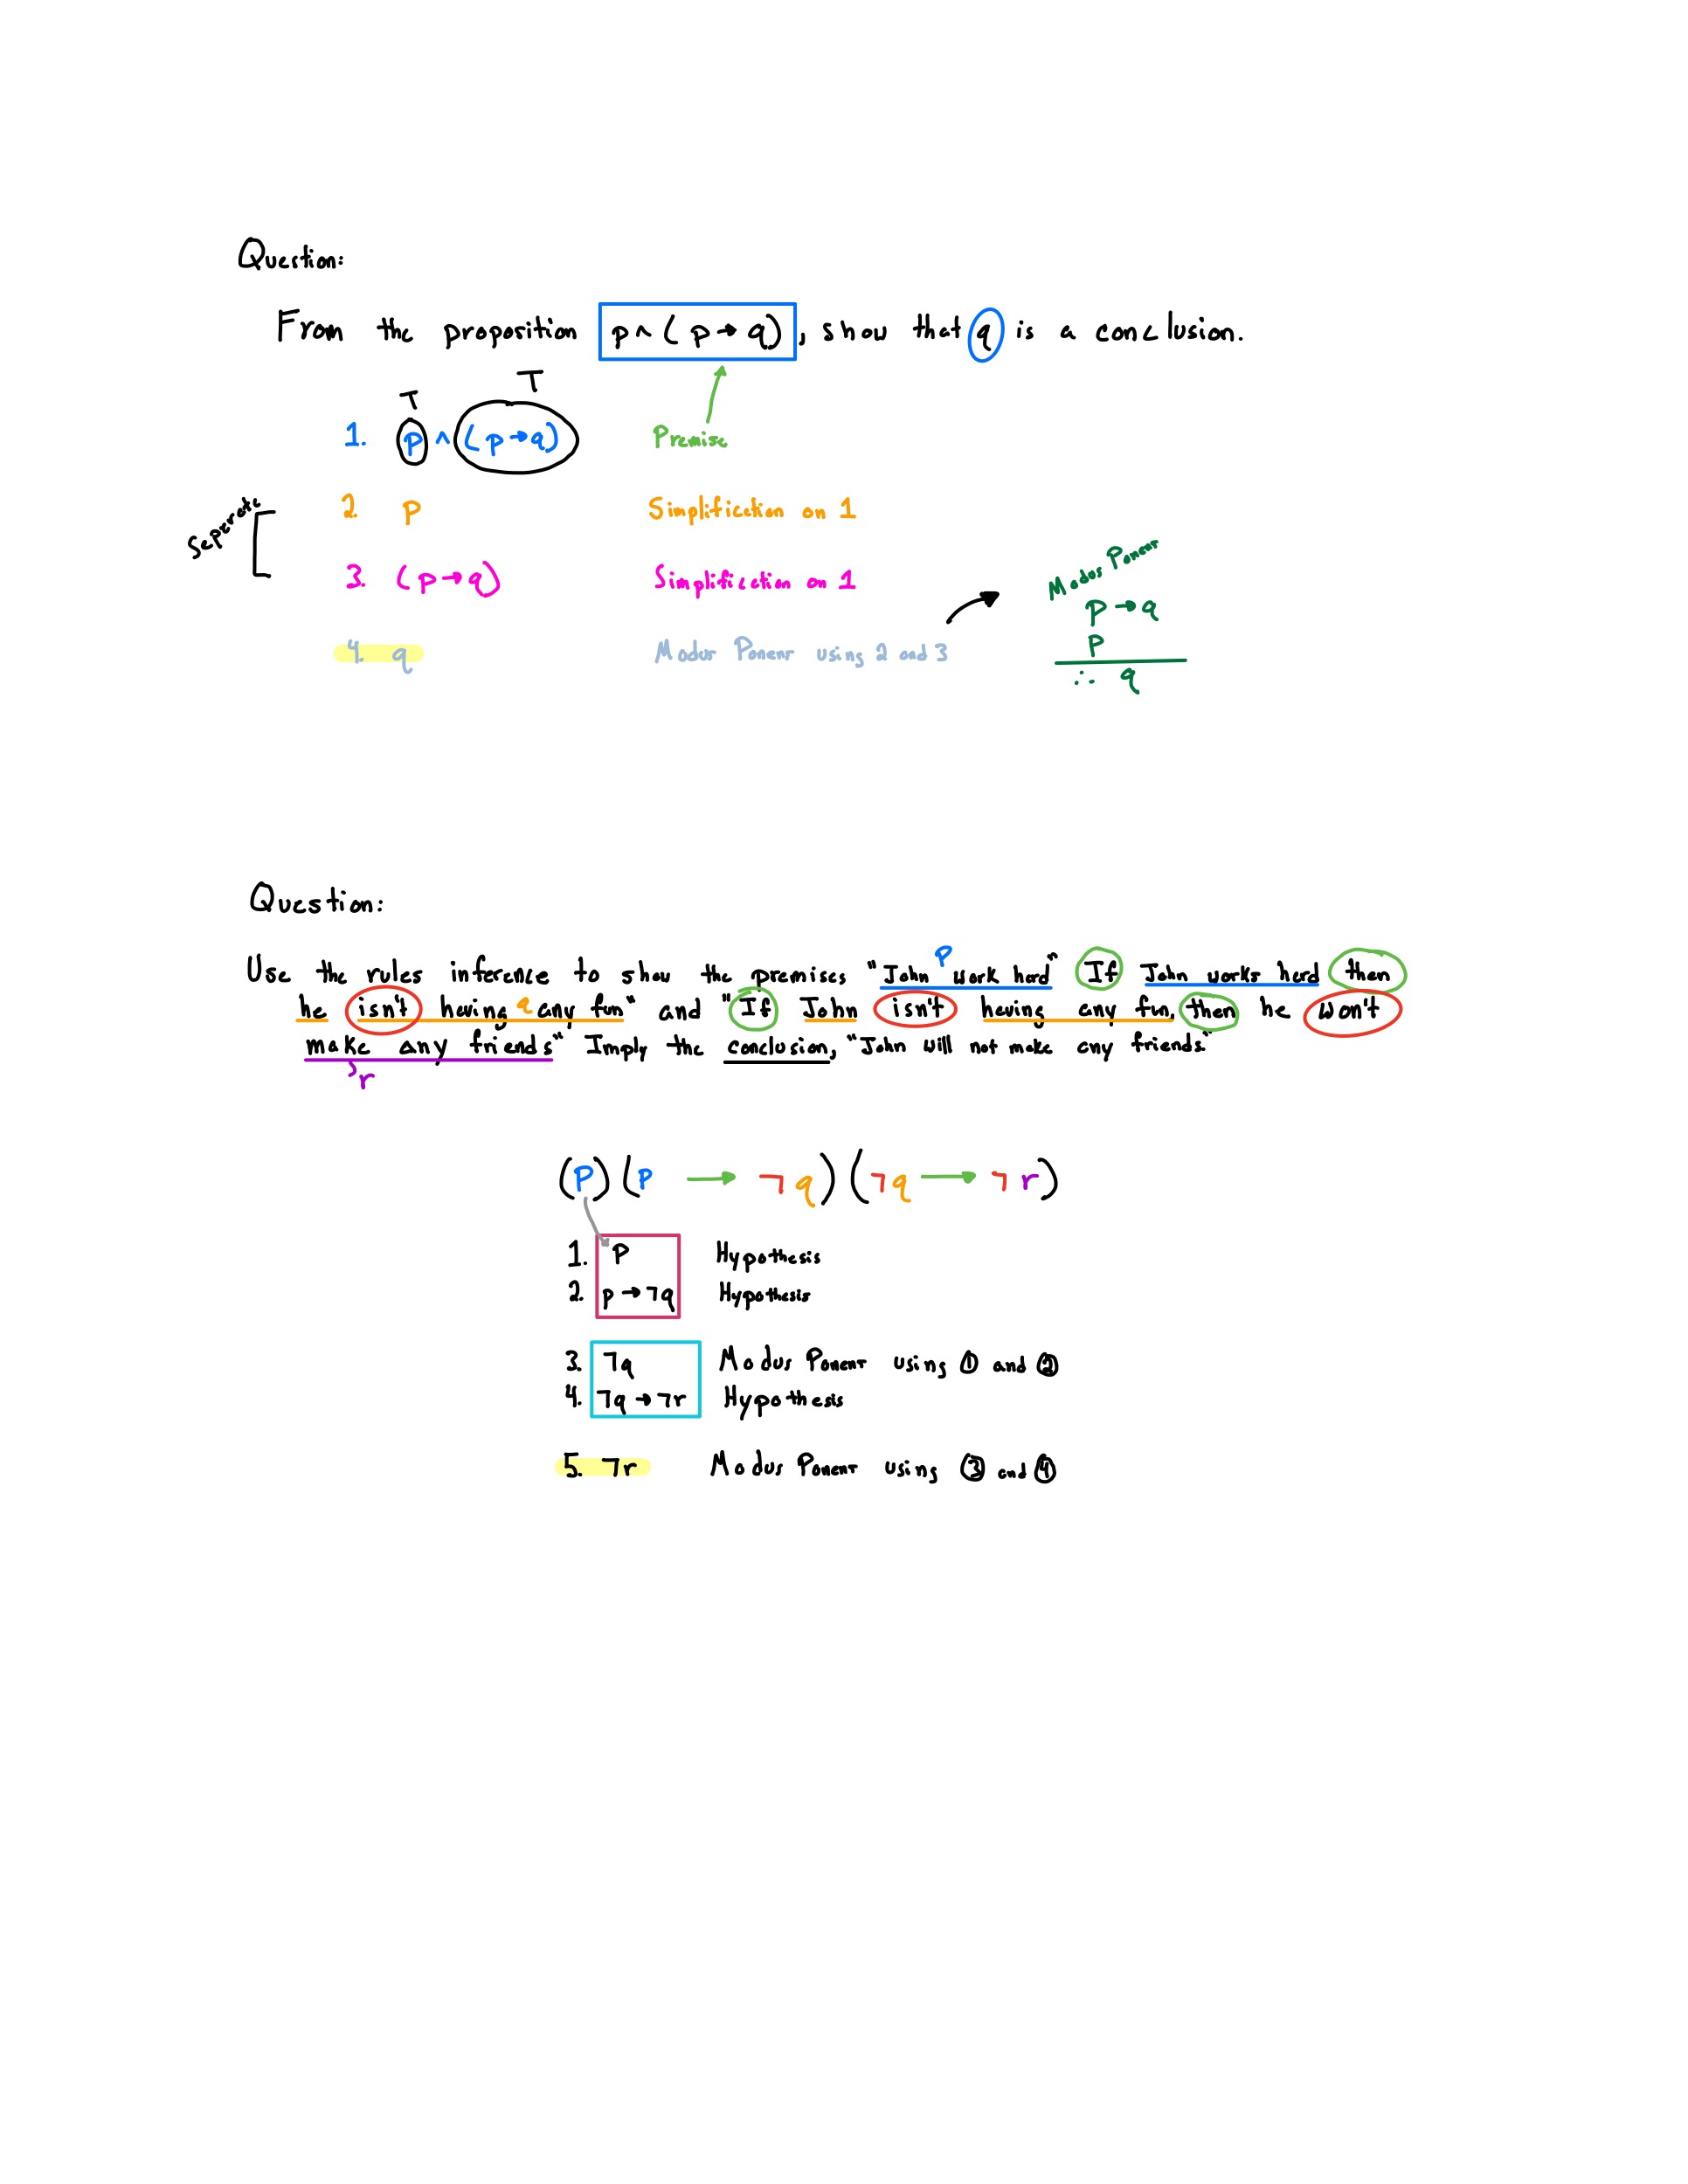 Question:
From the proposition p ∧ (p → q), show that q is a conclusion.
T T
1. p ∧ (p → q) Premise
Seperate
2. p Simplification on 1
3. (p → q) Simplification on 1
4. q Modus Ponens using 2 and 3
Modus Ponens
p → q
p
∴ q
Question:
Use the rules inference to show the premises "John work hard" If John works hard then
p
he isn't having any fun" and "If John isn't having any fun, then he won't
q
make any friends" Imply the conclusion, "John will not make any friends."
r
(p) (p → ¬q) (¬q → ¬r)
1. p Hypothesis
2. p → ¬q Hypothesis
3. ¬q Modus Ponens using ① and ②
4. ¬q → ¬r Hypothesis
5. ¬r Modus Ponens using ③ and ④